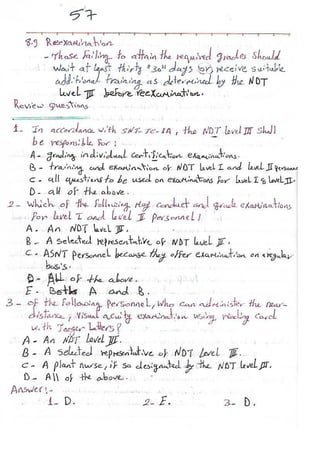 57
8.9 Reexamination
- Those failing to attain the required grades should
wait at least thirty "30" days (or) receive suitable
additional training as determined by the NDT
Level III before reexamination.
Review questions
1- In accordance with SNT-TC-1A, the NDT level III shall
be responsible for:
A- grading individual certification examinations.
B- training and examination of NDT level I and level II personnel
C- all questions to be used on examinations for level I & level II.
D- all of the above.
2- Which of the following may conduct and grade examinations
for level I and level II personnel?
A. An NDT level III.
B- A selected representative of NDT level III.
C- ASNT personnel because they offer examination on a regular
basis.
D- All of the above.
E- Both A and B.
3- Of the following personnel, who can administer the near-
distance, visual acuity examination using reading card
with Jaeger Letters?
A- An NDT level III.
B- A selected representative of NDT level III.
C- A plant nurse, if so designated by the NDT level III.
D- All of the above.
Answer:-
1- D. 2- E. 3- D.